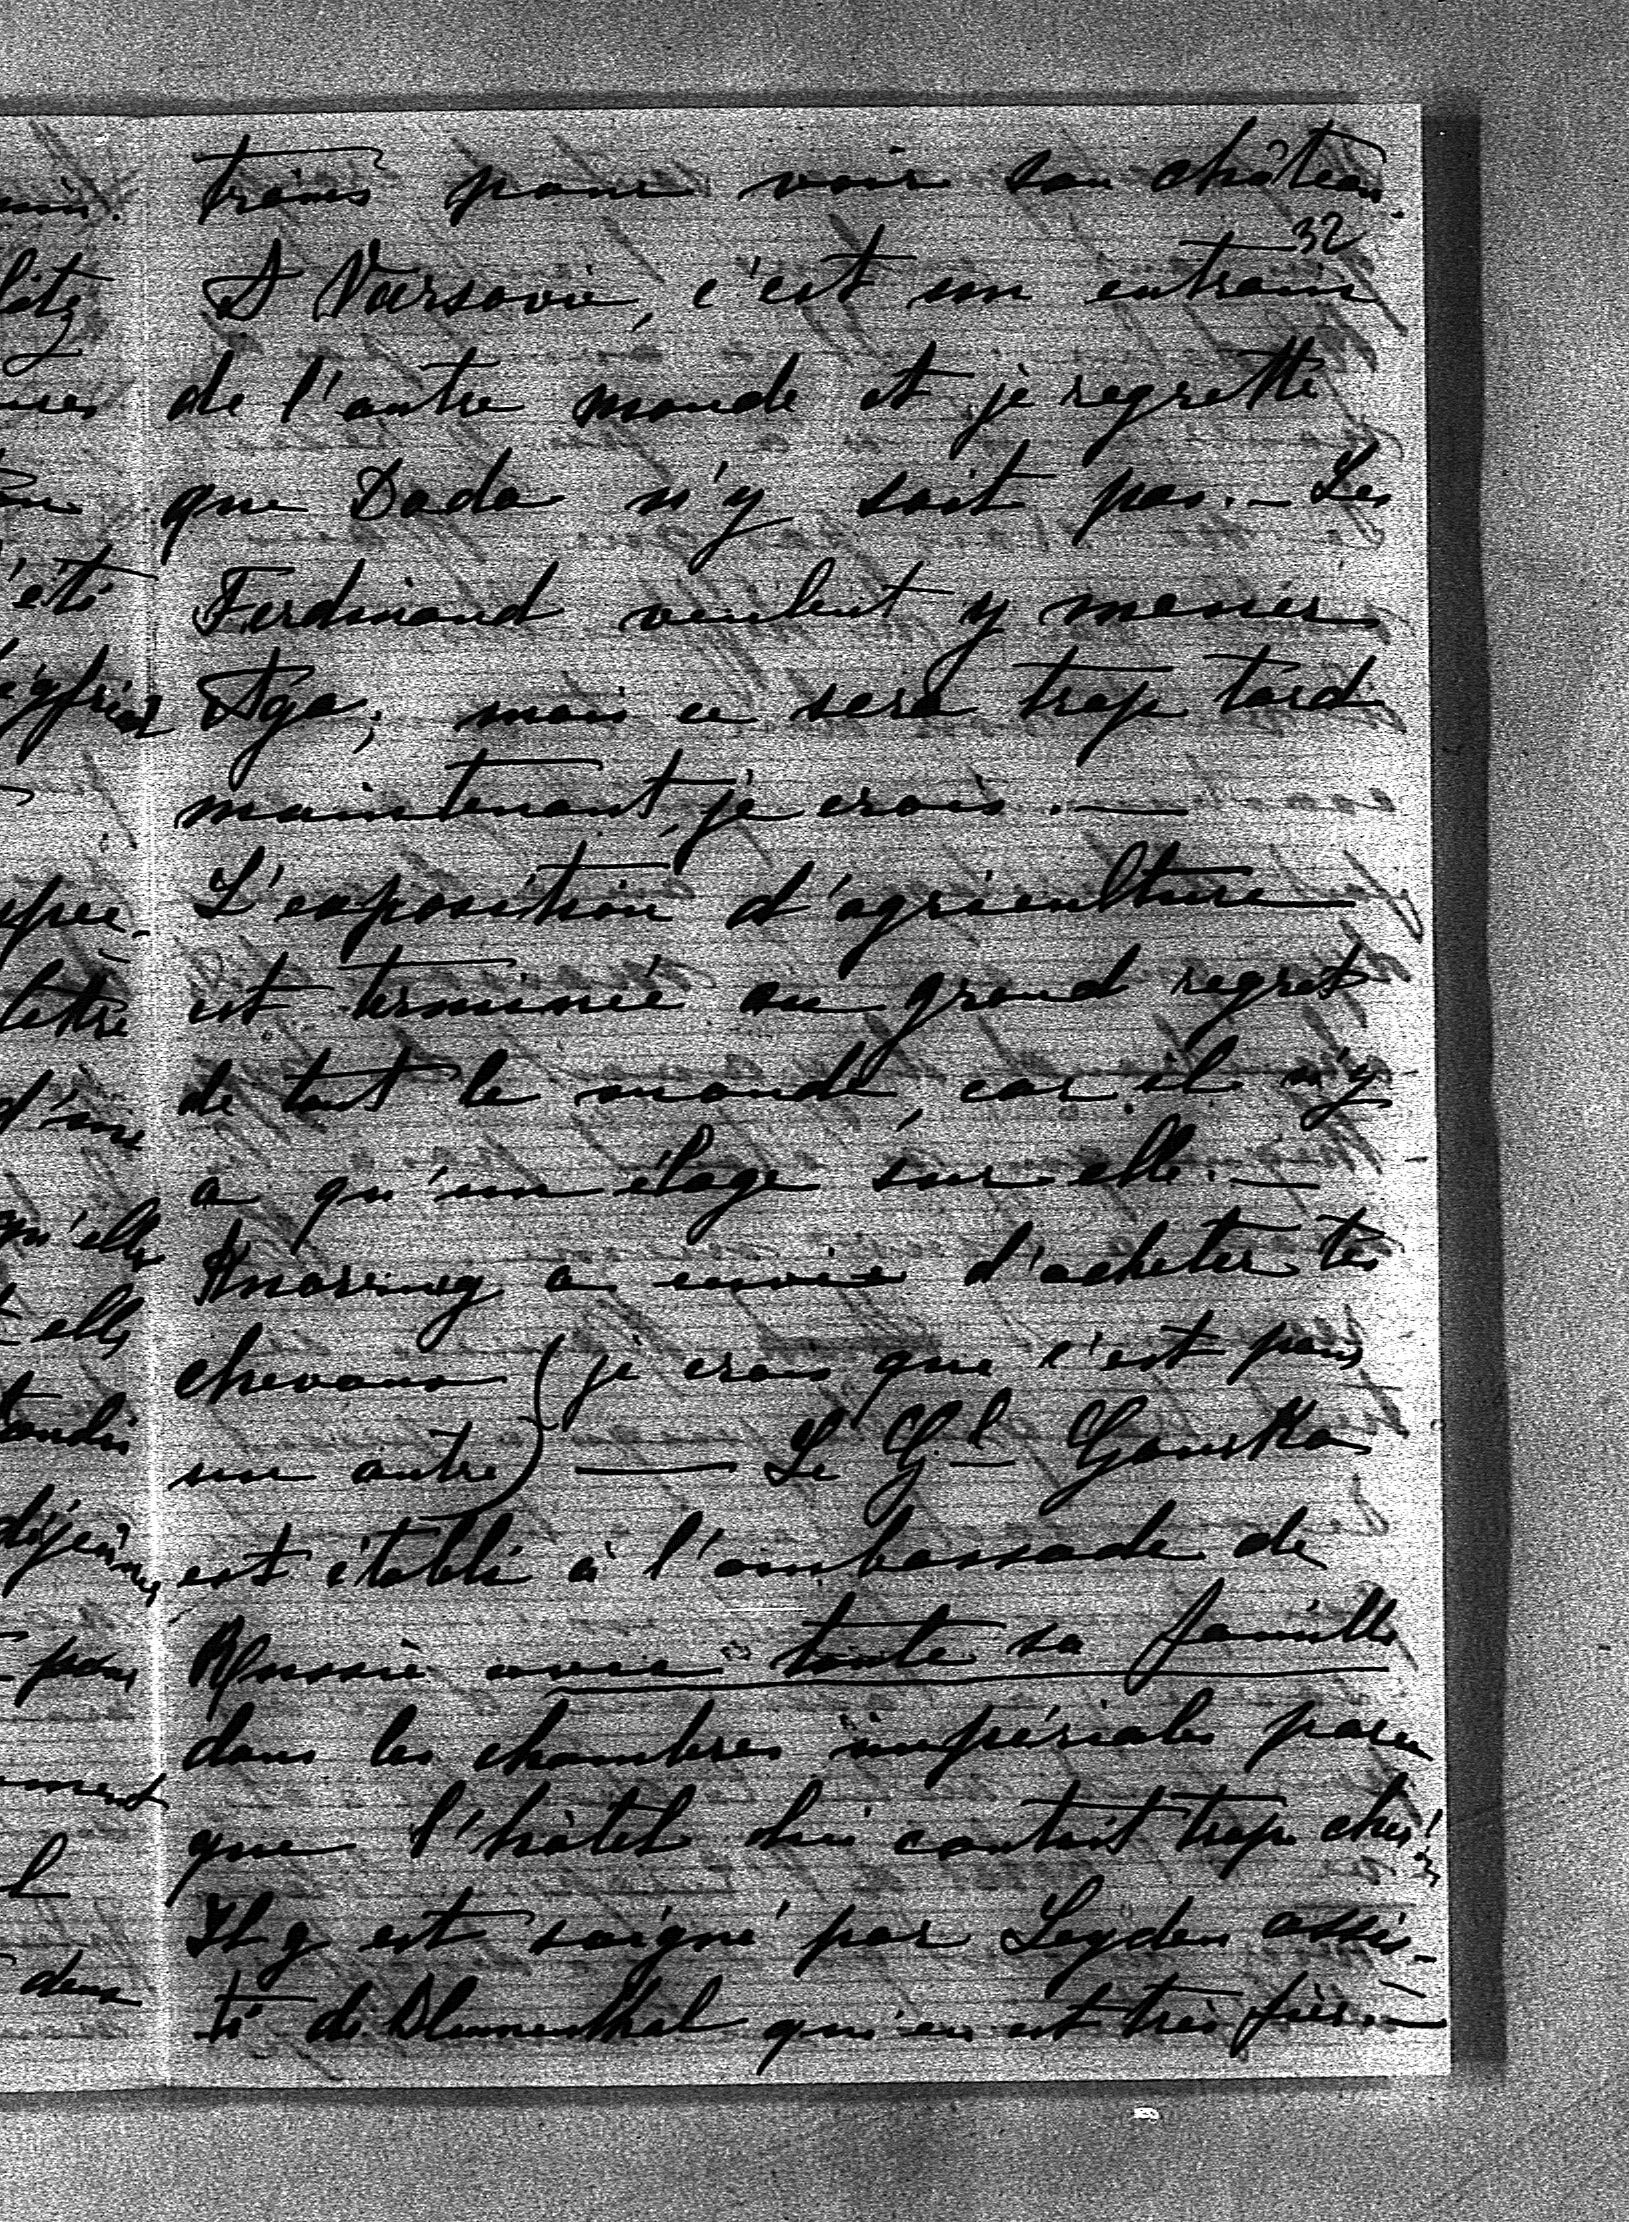 trains pour voir son château.
32
A Varsovie, c'est un entrain
de l'autre monde et je regrette
que Dada n'y soit pas. — Les
Ferdinand veulent y mener
Aga; mais ce sera trop tard
maintenant, je crois. —
L'exposition d'agriculture
est terminée au grand regret
de tout le monde, car il n'y
a qu'un éloge sur elle. —
Knorring a envie d'acheter tes
chevaux (je crois que c'est pour
un autre) — Le Gl Gourko
est établi à l'ambassade de
Russie avec toute sa famille
dans les chambres impériales parce
que l'hôtel lui coûtait trop cher!
Il y est soigné par Leyden assis-
té de Blumenthal qui en est très fier. —